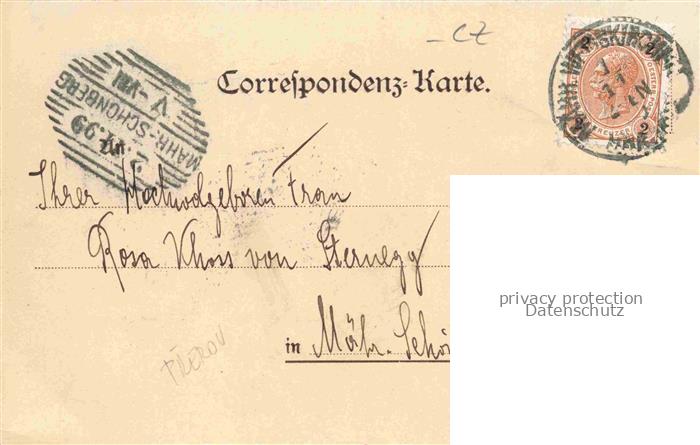 – CZ
Correspondenz-Karte.
MÄHR.-SCHÖNBERG
V–VIII
99
2
2
2
KREUZER
Ihrer Hochwolgeboren Frau
Rosa Khoss von Sternegg
in Mähr. Schön
PŘEROV
privacy protection
Datenschutz